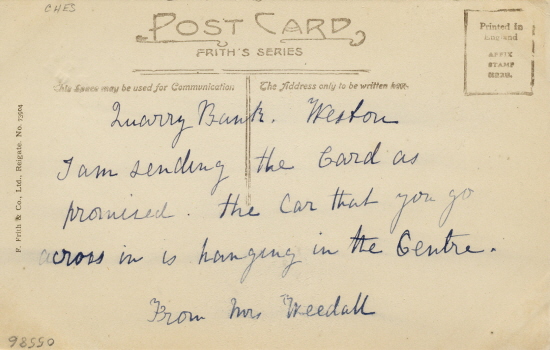 CHES
POST CARD
FRITH'S SERIES
Printed in
England
AFFIX
STAMP
HERE
This Space may be used for Communication.
The Address only to be written here.
Quarry Bank. Weston
I am sending the Card as
promised. the Car that you go
across in is hanging in the Centre.
From Mrs Weedall
F. Frith & Co., Ltd., Reigate. No. 73504
98550